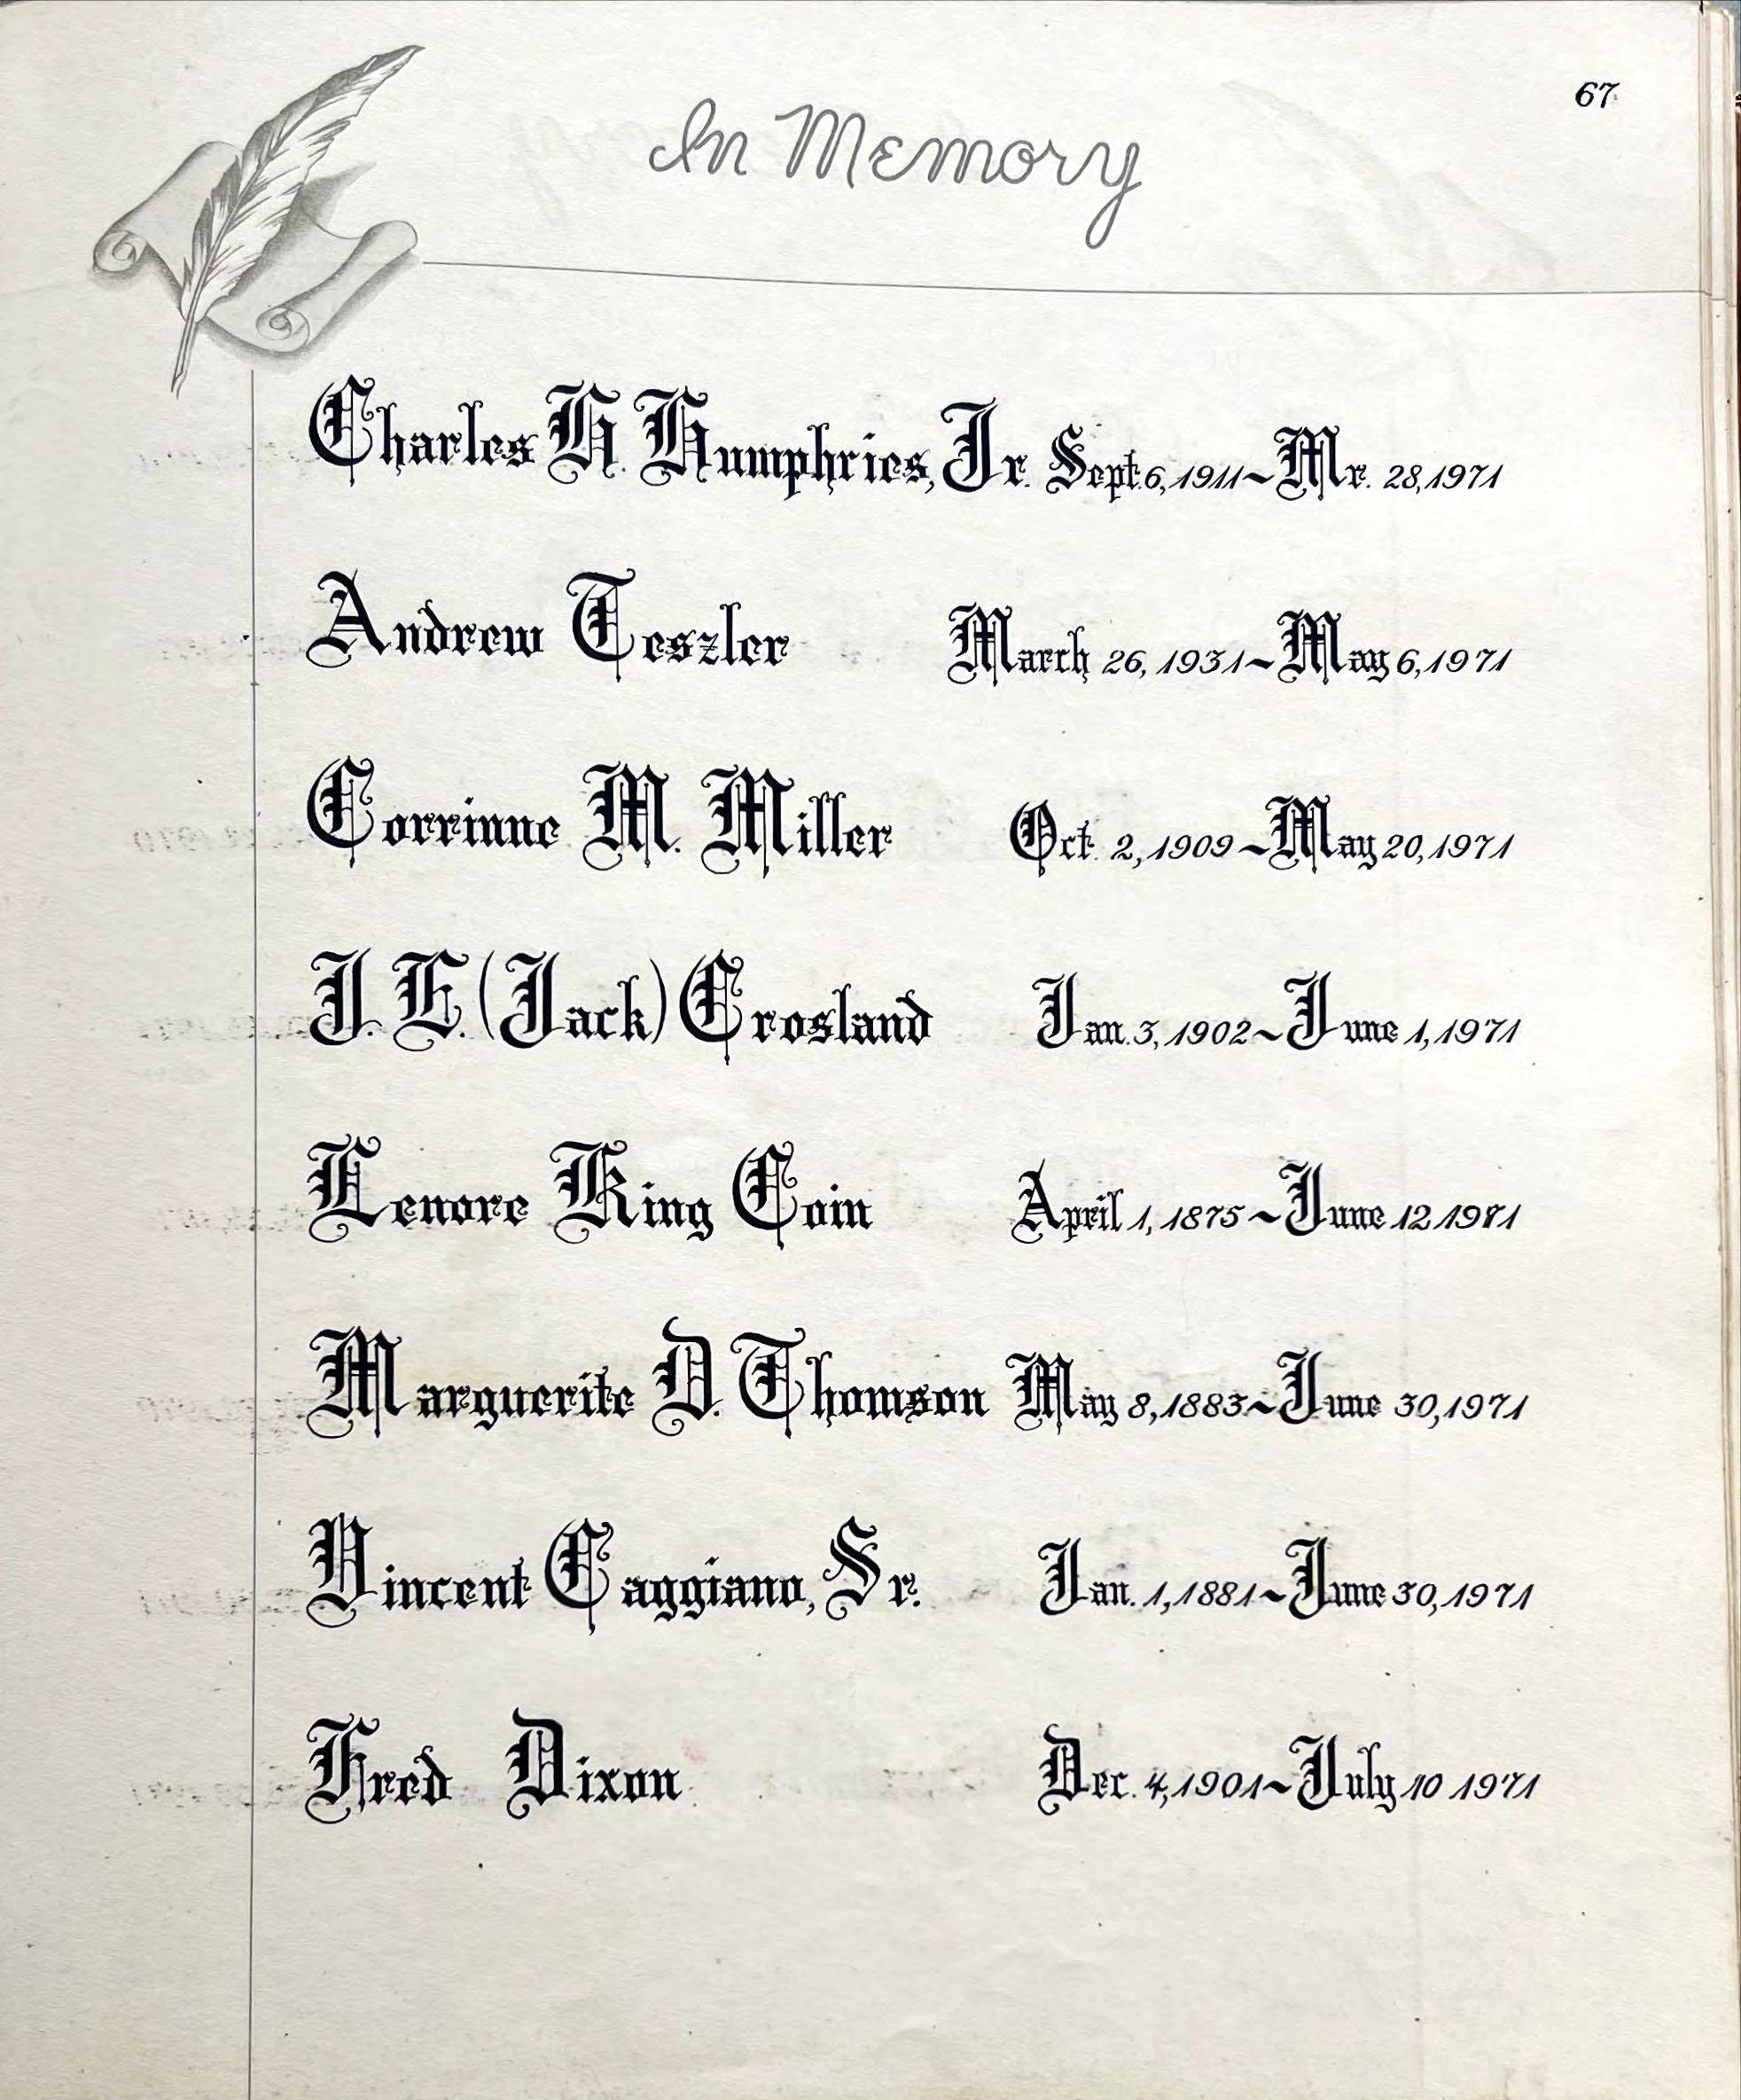 67
In Memory
Charles H. Humphries, Jr. Sept. 6, 1911~Mr. 28, 1971
Andrew Teszler March 26, 1931~May 6, 1971
Corrinne M. Miller Oct. 2, 1909~May 20, 1971
J. E. (Jack) Crosland Jan. 3, 1902~June 1, 1971
Lenore King Coin April 1, 1875~June 12 1971
Marguerite D. Thomson May 8, 1883~June 30, 1971
Vincent Caggiano, Sr. Jan. 1, 1881~June 30, 1971
Fred Dixon Dec. 4, 1901~July 10 1971